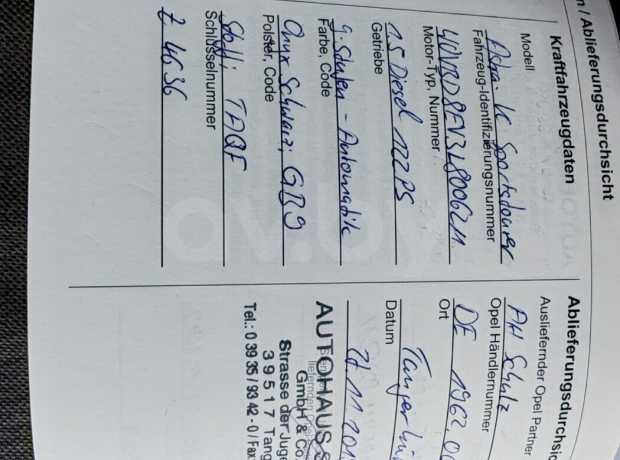 n / Ablieferungsdurchsicht
Kraftfahrzeugdaten
Modell
Astra-K Sportstourer
Fahrzeug-Identifizierungsnummer
Motor-Typ, Nummer
1.5 Diesel 122 PS
Getriebe
9. Stufen - Automatik
Farbe, Code
Onyx Schwarz;
Polster, Code
Stoff: TAQF
Schlüsselnummer
Z 4636
Ablieferungsdurchsic
Ausliefernder Opel Partner
AH Schulz
Opel Händlernummer
DE 1962
Ort
Tangerhü
Datum
AUTOHAUS S
GmbH & Co.
Strasse der Juge
39517 Tang
Tel.: 0 39 35 / 93 42 - 0 / Fax
av.by